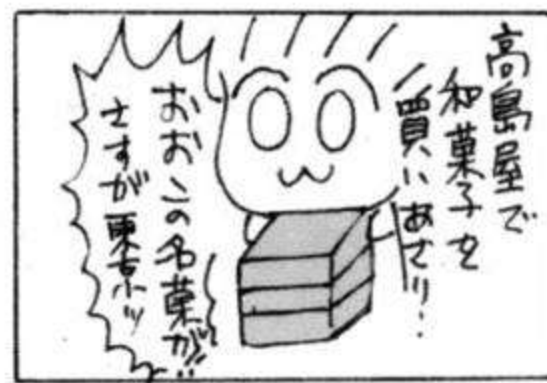 高島屋で
和菓子を
買いあさり‥
おおこの名菓が!!
さすが東京ッ